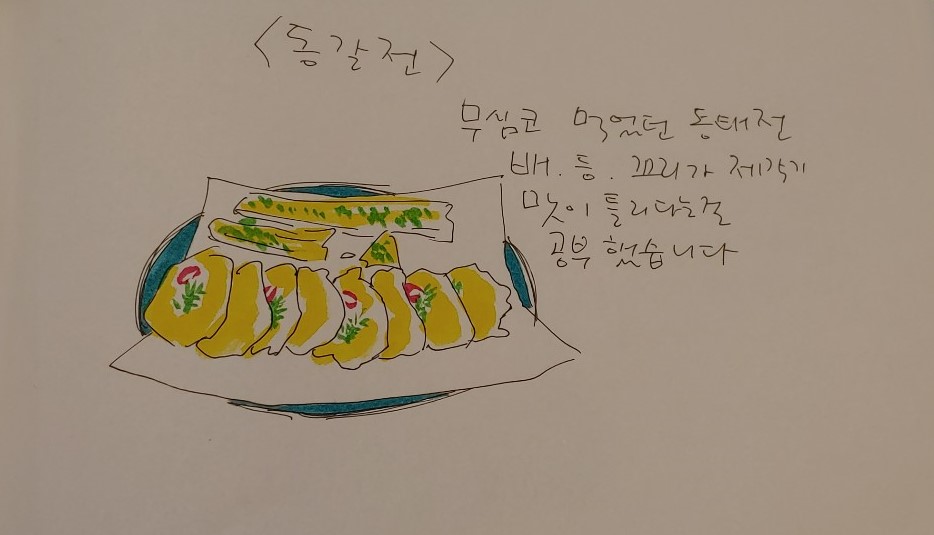 <동갈전>
무심코 먹었던 동태전
배.등.꼬리가 제각기
맛이 틀리다는걸
공부했습니다